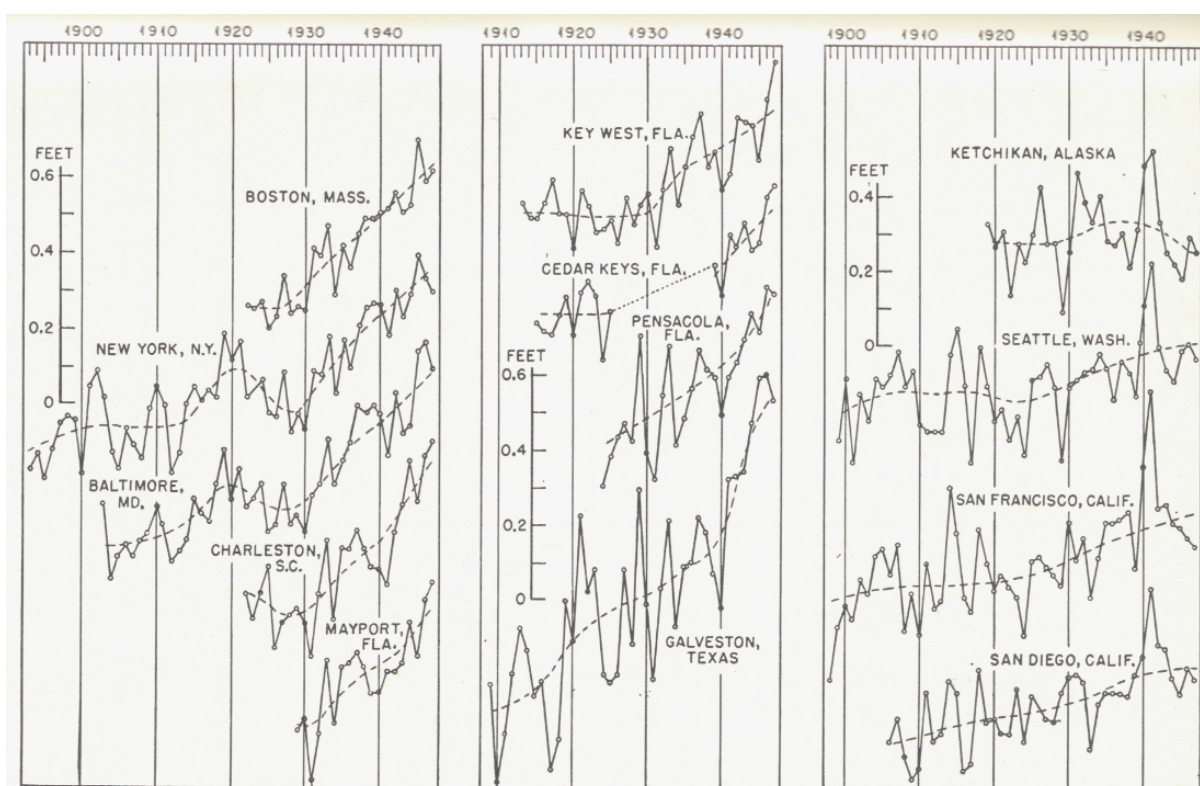 1900 1910 1920 1930 1940
FEET
0.6
0.4
0.2
0
BOSTON, MASS.
NEW YORK, N.Y.
BALTIMORE,
MD.
CHARLESTON,
S.C.
MAYPORT,
FLA.
1910 1920 1930 1940
KEY WEST, FLA.
CEDAR KEYS, FLA.
PENSACOLA,
FLA.
FEET
0.6
0.4
0.2
0
GALVESTON,
TEXAS
1900 1910 1920 1930 1940
KETCHIKAN, ALASKA
FEET
0.4
0.2
0
SEATTLE, WASH.
SAN FRANCISCO, CALIF.
SAN DIEGO, CALIF.